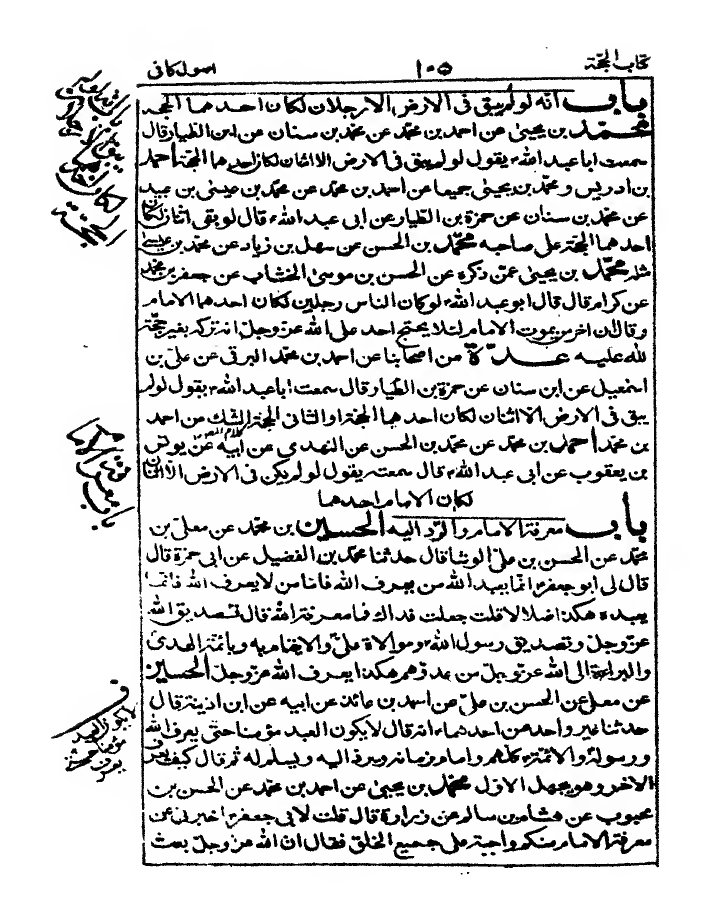 كتاب الحجّة ١٠٥ اصول كافى
باب انّه لو لم يبق فى الارض الا رجلان لكان احدهما الحجة
محمّد بن يحيى عن احمد بن محمّد عن محمّد بن سنان عن ابن الطيار قال
سمعت ابا عبد الله ع يقول لو لم يبق فى الارض الا اثنان لكان احدهما الحجّة احمد
بن ادريس ومحمّد بن يحيى جميعا عن احمد بن محمّد عن محمّد بن عيسى بن عبيد
عن محمّد بن سنان عن حمزة بن الطيار عن ابى عبد الله ع قال لو بقى اثنان لكان
احدهما الحجّة على صاحبه محمّد بن الحسن عن سهل بن زياد عن محمّد بن عيسى
مثله محمّد بن يحيى عمّن ذكره عن الحسن بن موسى الخشاب عن جعفر بن محمّد
عن كرام قال قال ابو عبد الله ع لو كان الناس رجلين لكان احدهما الامام
وقال ان اخر من يموت الامام لئلا يحتج احد على الله عزّ وجلّ انه تركه بغير حجّة
لله عليه عدّة من اصحابنا عن احمد بن محمّد البرقى عن علىّ بن
اسمعيل عن ابن سنان عن حمزة بن الطيار قال سمعت ابا عبد الله ع يقول لو لم
يبق فى الارض الا اثنان لكان احدهما الحجّة او الثانى الحجّة الشك من احمد
بن محمّد احمد بن محمّد عن محمّد بن الحسن عن النهدى عن ابيه عن يونس
بن يعقوب عن ابى عبد الله ع قال سمعته يقول لو لم يكن فى الارض الا اثنان
لكان الامام احدهما
باب معرفة الامام والردّ اليه الحسين بن محمّد عن معلى بن
محمّد عن الحسن بن علىّ الوشا قال حدثنا محمّد بن الفضيل عن ابى حمزة قال
قال لى ابو جعفر ع انّما يعبد الله من يعرف الله فامّا من لا يعرف الله فانّما
يعبده هكذا ضلالا قلت جعلت فداك فما معرفة الله قال تصديق الله
عزّ وجلّ وتصديق رسول الله ص وموالاة علىّ والايتمام به وبائمّة الهدى
والبراءة الى الله عزّ وجلّ من عدوّهم هكذا يعرف الله عزّ وجلّ الحسين
عن معلى عن الحسن بن علىّ عن احمد بن عائذ عن ابيه عن ابن اذينة قال
حدثنا غير واحد عن احدهما ع انه قال لا يكون العبد مؤمنا حتّى يعرف الله
ورسوله والائمّة كلّهم وامام زمانه ويردّ اليه ويسلم له ثم قال كيف يعرف
الاخر وهو يجهل الاوّل محمّد بن يحيى عن احمد بن محمّد عن الحسن بن
محبوب عن هشام بن سالم عن زرارة قال قلت لابى جعفر ع اخبرنى عن
معرفة الامام منكم واجبة على جميع الخلق فقال ان الله عزّ وجلّ بعث
باب معرفة الامام